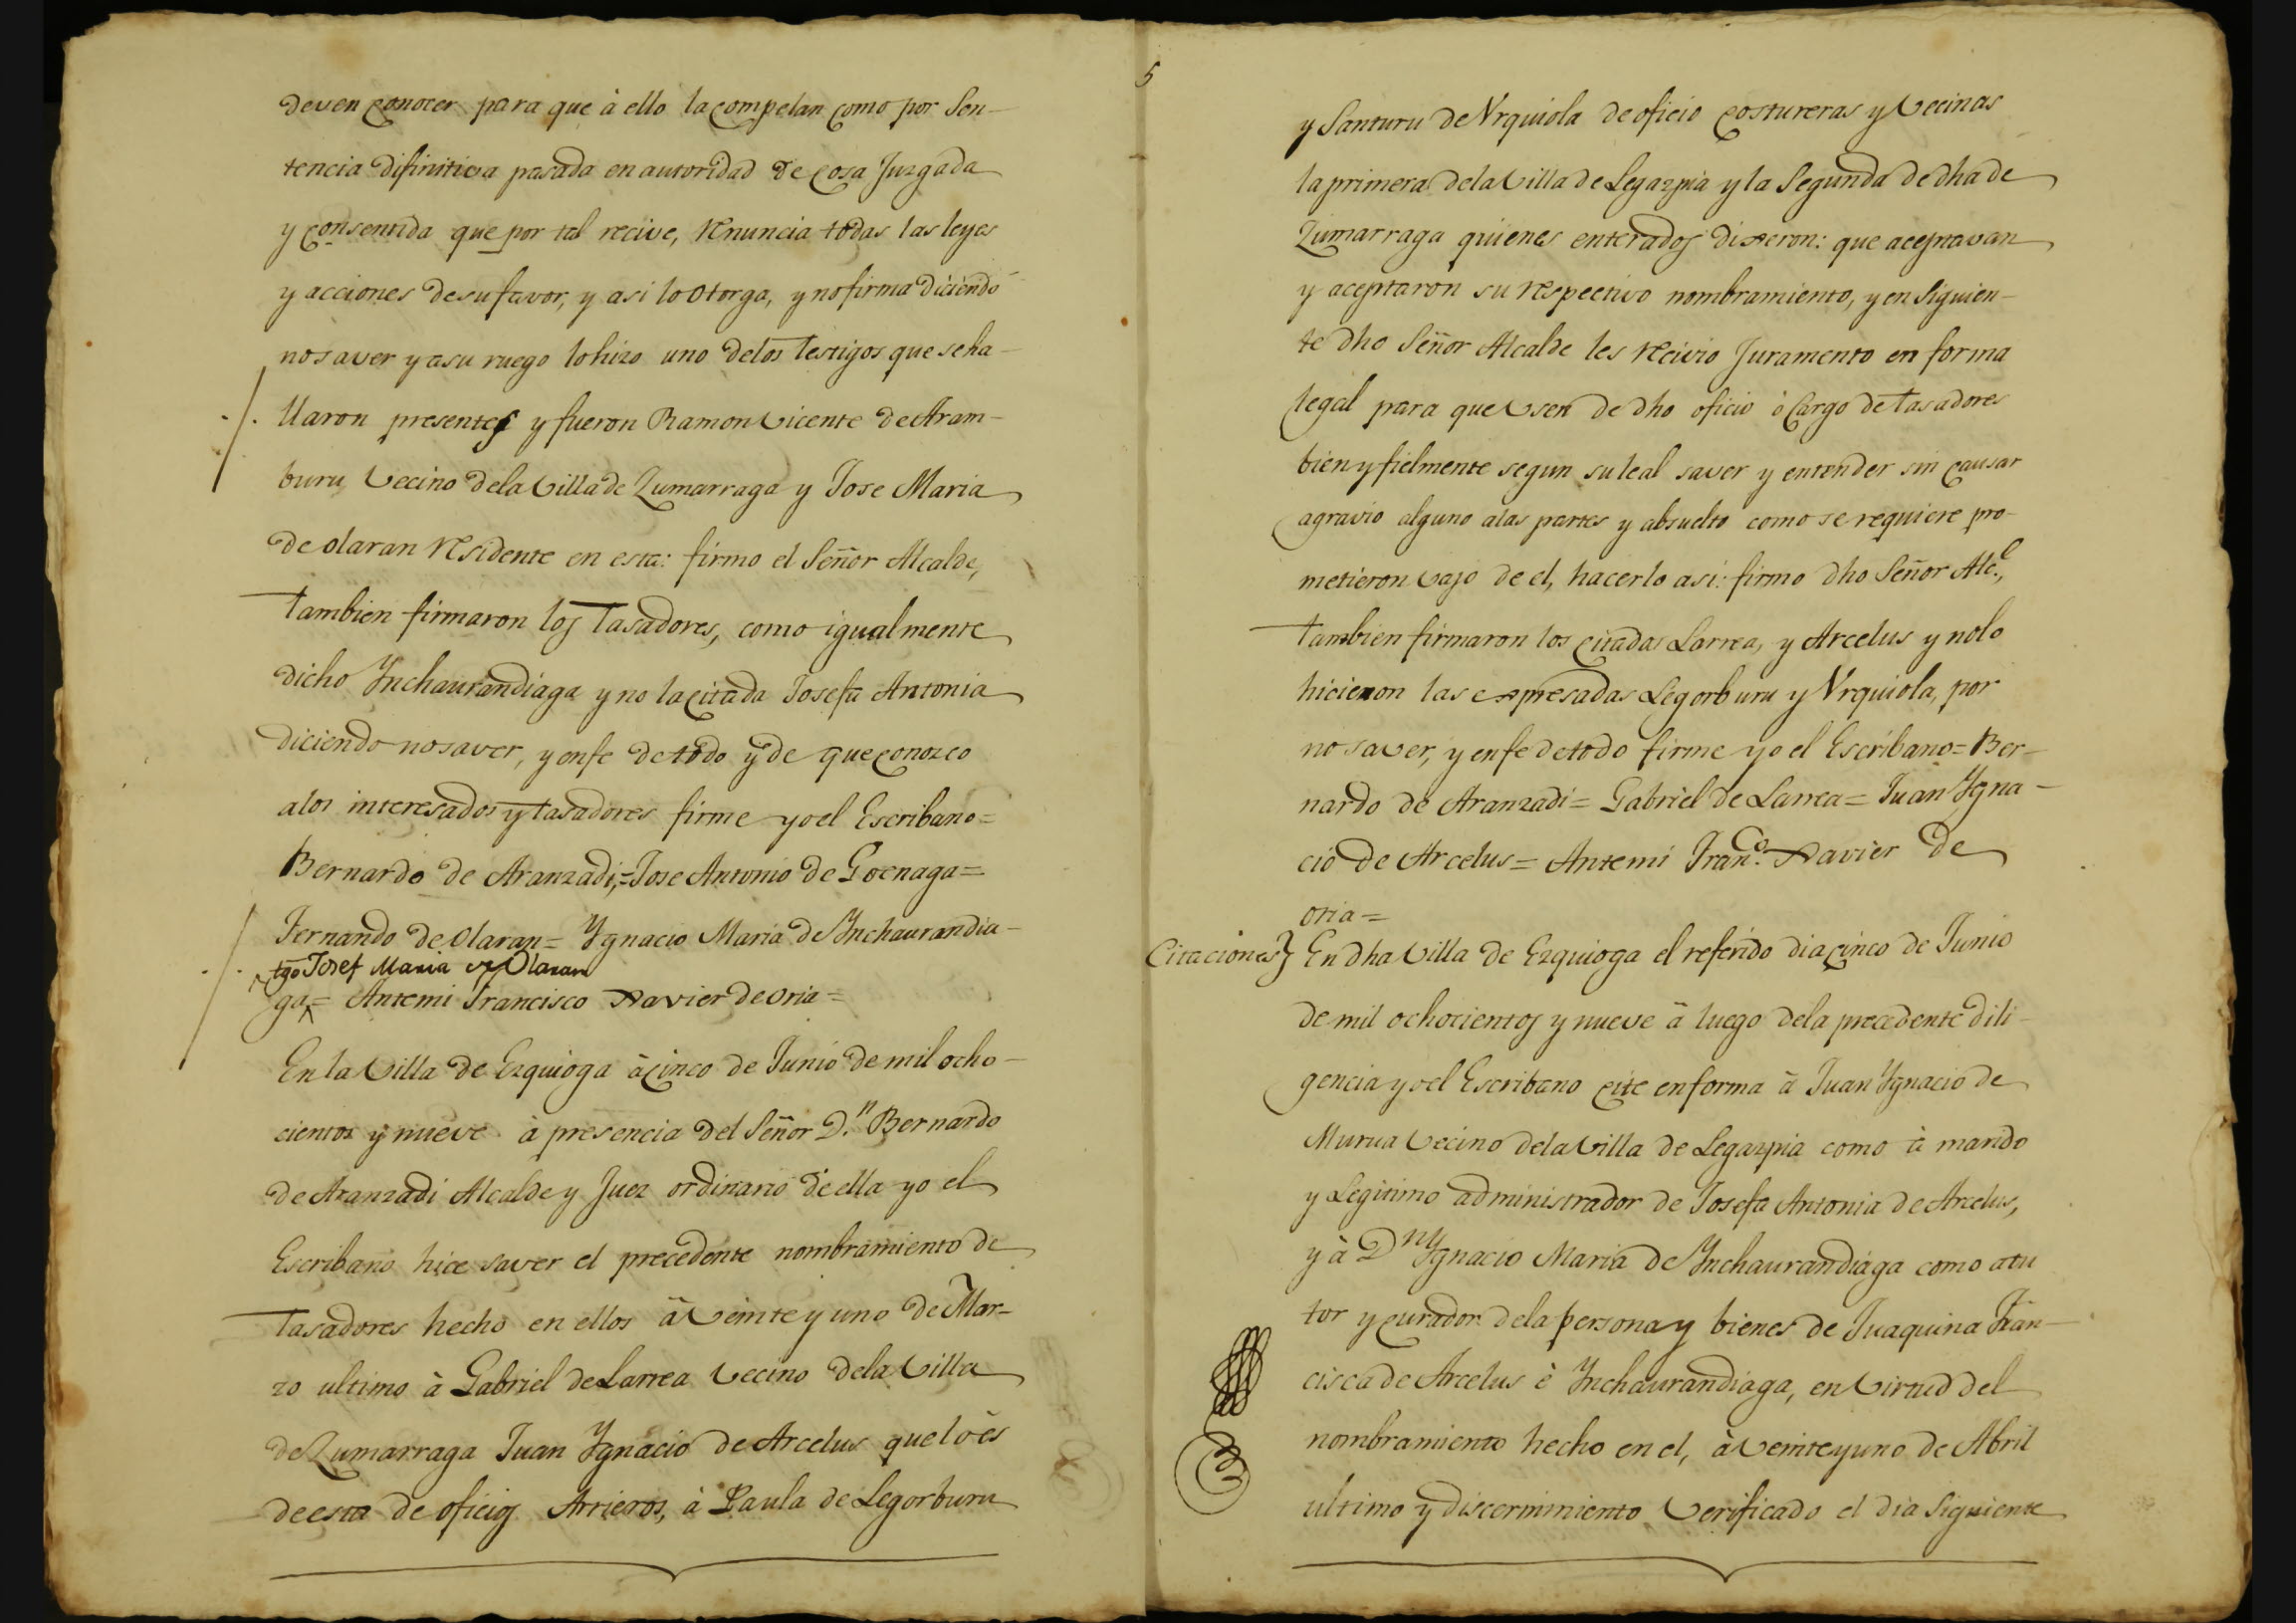 deven conocer para que à ello la compelan como por Sen-
tencia difinitiva pasada en autoridad de cosa Juzgada
y consentida que por tal recive, renuncia todas las leyes
y acciones de su favor, y asi lo otorga, y no firma diciendo
no saver y asu ruego lo hizo uno delos testigos que se ha-
llaron presentes y fueron Ramon Vicente de Aram-
buru Vecino dela Villa de Zumarraga y Jose Maria
de olaran residente en esta: firmo el Señor Alcalde,
tambien firmaron los Tasadores, como igualmente
dicho Ynchaurandiaga y no la citada Josefa Antonia
diciendo no saver, y enfe de todo y de que conozco
alos interesados y tasadores firme yo el Escribano=
Bernardo de Aranzadi,=Jose Antonio de Goenaga=
Fernando de Olaran= Ygnacio Maria de Ynchaurandia-
tgo Josef Maria de Olaran
ga= Antemi Francisco Xavier de oria=
En la Villa de Ezquioga à cinco de Junio de mil ocho-
cientos y nueve à presencia del Señor D.n Bernardo
de Aranzadi Alcalde y Juez ordinario de ella yo el
Escribano hice saver el precedente nombramiento de
Tasadores hecho en ellos à Veinte y uno de Mar-
zo ultimo à Gabriel de Larrea Vecino dela Villa
de Zumarraga Juan Ygnacio de Arcelus que lo ès
de esta de oficios Arrieros, à Paula de Legorburu
5
y Santuru de Vrquiola de oficio costureras y Vecinas
la primera dela Villa de Legazpia y la Segunda de dha de
Zumarraga quienes enterados dixeron: que aceptavan
y aceptaron su respectivo nombramiento, y en Siguien-
te dho Señor Alcalde les recivio Juramento en forma
legal para que Usen de dho oficio ò Cargo de tasadores
bien y fielmente segun su leal saver y entender sin causar
agravio alguno alas partes y absuelto como se requiere pro-
metieron vajo de el, hacerlo asi: firmo dho Señor Alc.e,
tambien firmaron los citados Larrea, y Arcelus y nolo
hicieron las expresadas Legorburu y Vrquiola, por
no saver, y enfe de todo firme yo el Escribano= Ber-
nardo de Aranzadi= Gabriel de Larrea= Juan Ygna-
cio de Arcelus= Antemi Fran.co Xavier de
oria=
Citaciones} En dha Villa de Ezquioga el referido dia cinco de Junio
de mil ochocientos y nueve à luego dela precedente dili-
gencia yo el Escribano cite en forma à Juan Ygnacio de
Murua Vecino dela Villa de Legazpia como à marido
y Legitimo administrador de Josefa Antonia de Arcelus,
y à D.n Ygnacio Maria de Ynchaurandiaga como atu
tor y curador dela persona y bienes de Juaquina Fran-
cisca de Arcelus è Ynchaurandiaga, en Virtud del
nombramiento hecho en el, à Veinte y uno de Abril
ultimo y discernimiento Verificado el dia Siguiente